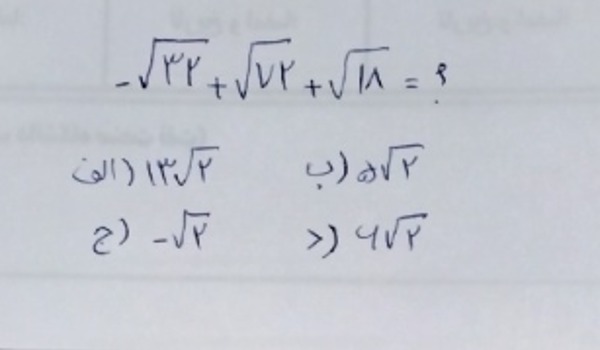 -√۳۲ + √۷۲ + √۱۸ = ؟
الف) ۱۳√۲ ب) ۵√۲
ج) -√۲ د) ۶√۲